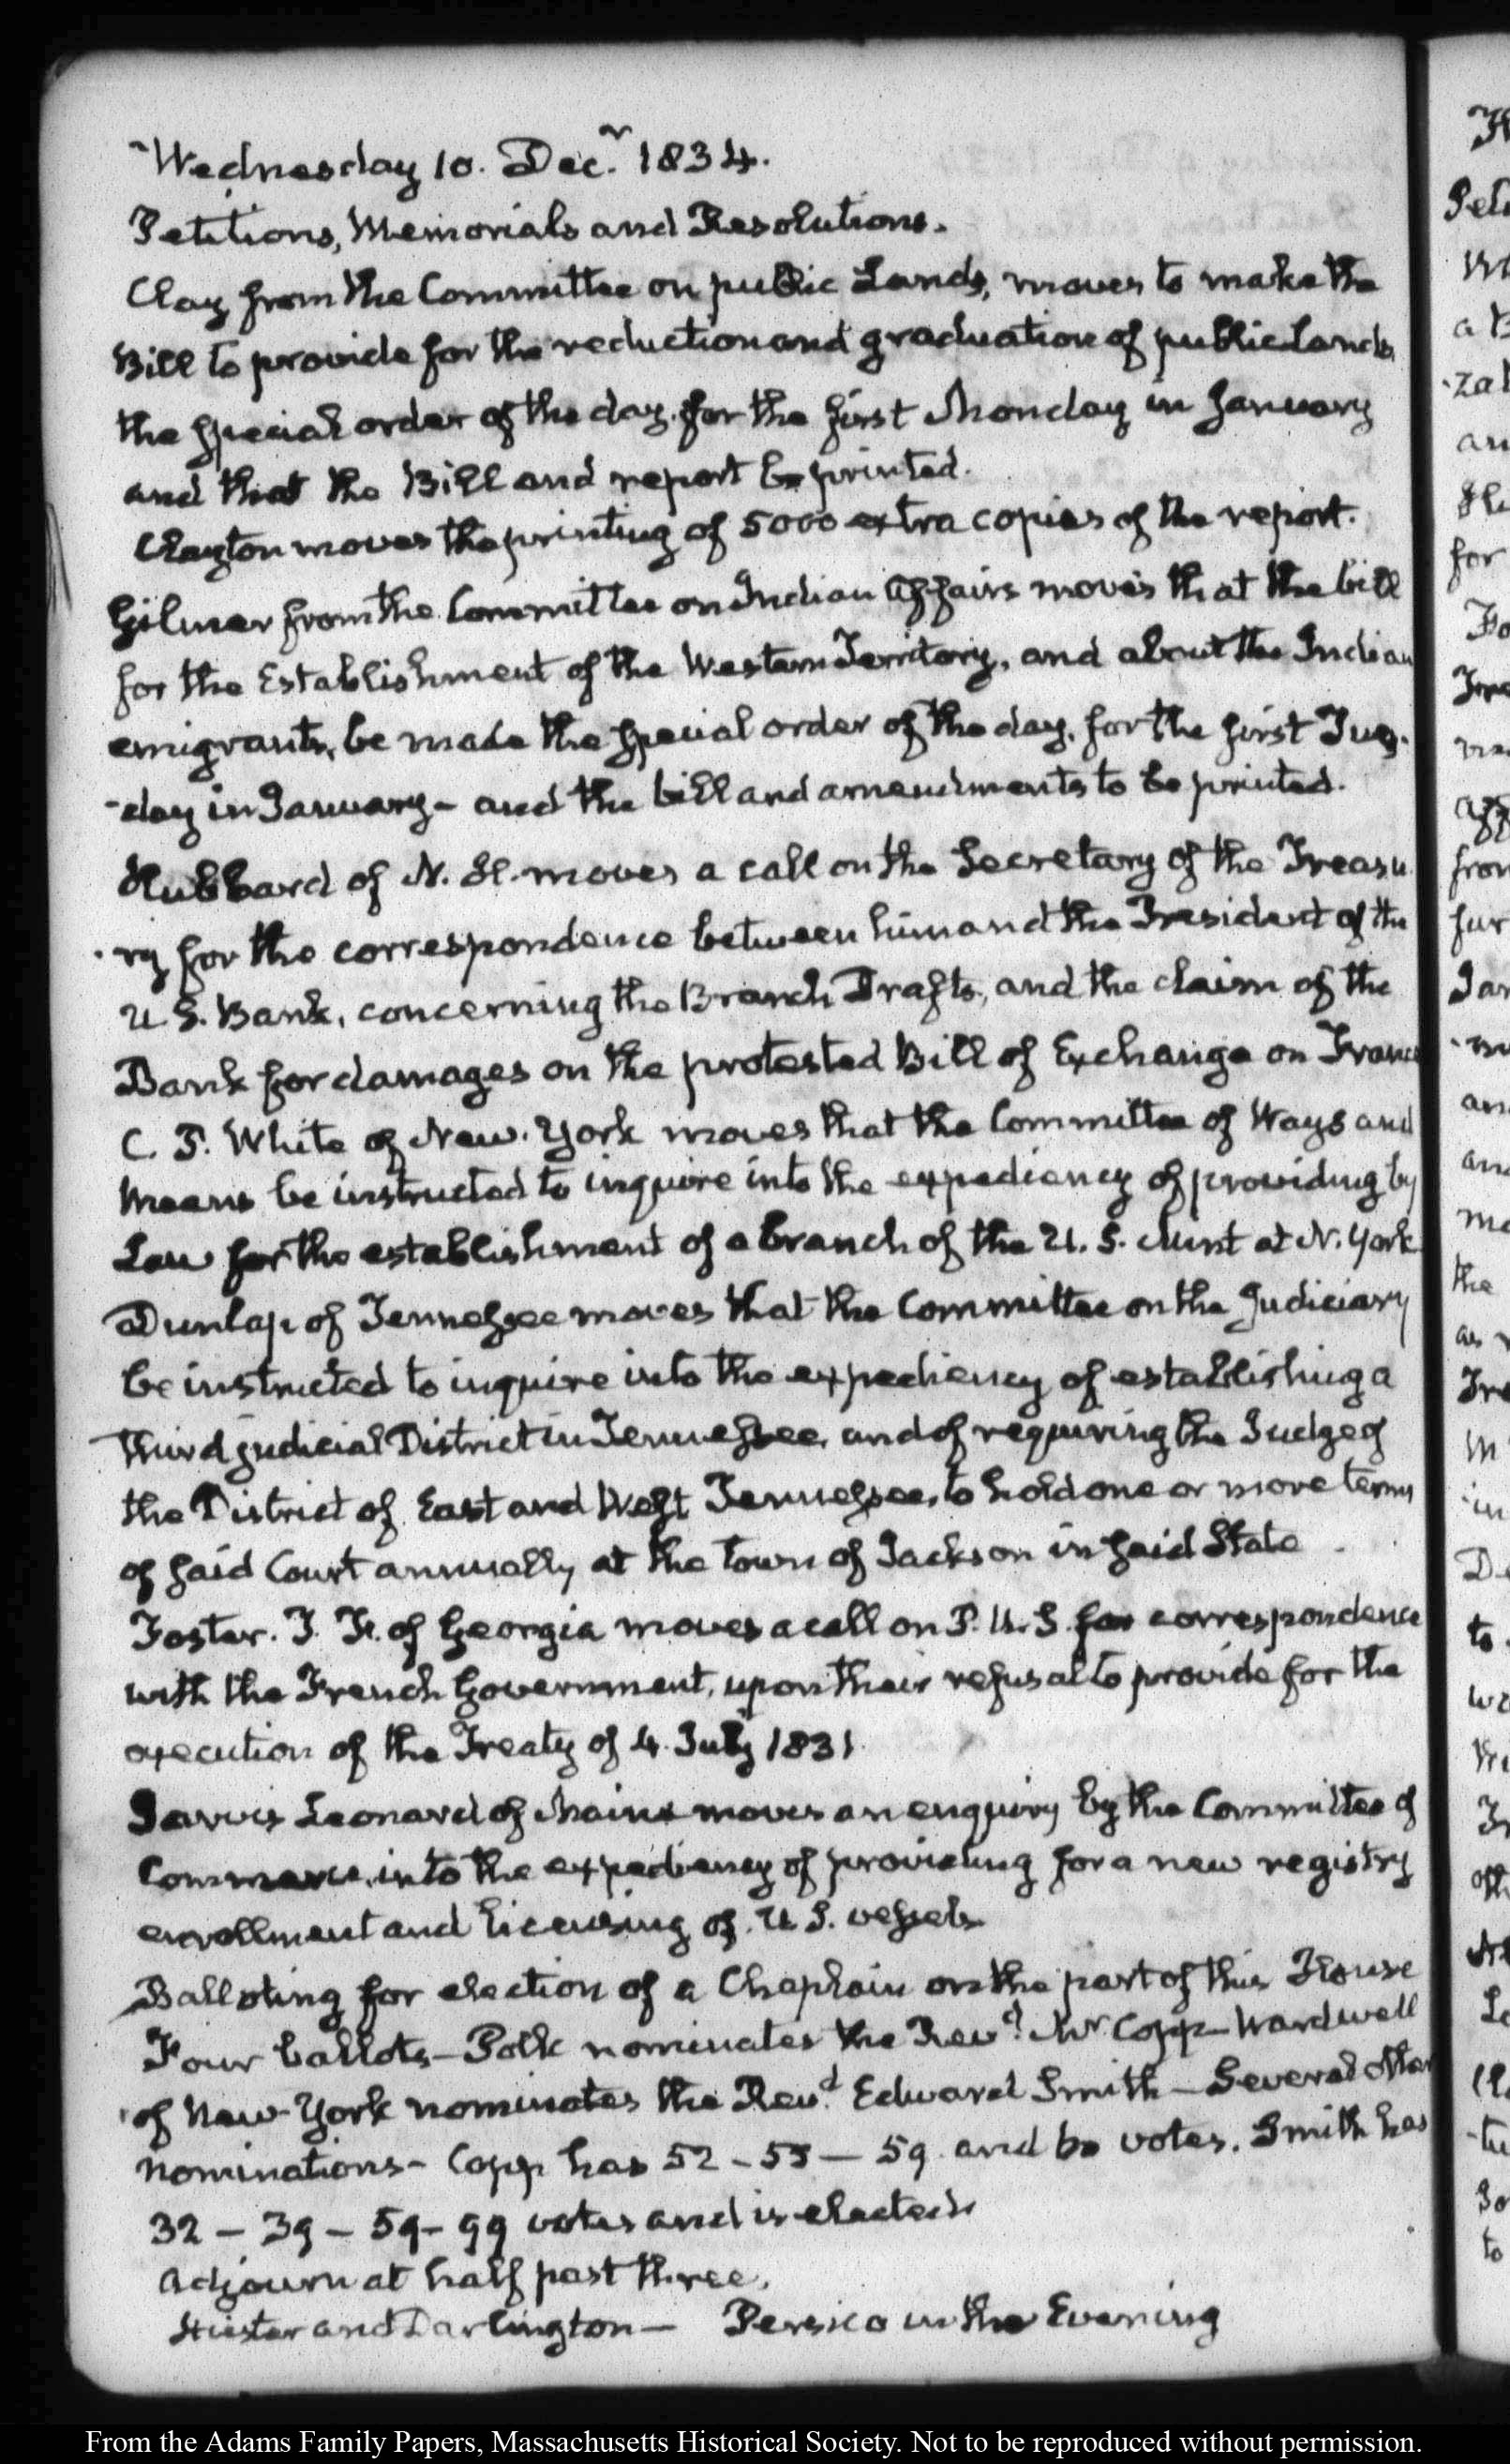 Wednesday 10. Decr. 1834.
Petitions, Memorials and Resolutions.
Clay from the Committee on public Lands, moves to make the
Bill to provide for the reduction and graduation of public Lands,
the special order of the day, for the first Monday in January
and that the Bill and report be printed.
Clayton moves the printing of 5000 extra copies of the report.
Gilmer from the Committee on Indian Affairs moves that the bill
for the Establishment of the Western Territory, and about the Indian
emigrants, be made the special order of the day, for the first Tues-
-day in January - and the bill and amendments to be printed.
Hubbard of N. H. moves a call on the Secretary of the Treasu
-ry for the correspondence between him and the President of the
U.S. Bank, concerning the Branch Drafts, and the claim of the
Bank for damages on the protested Bill of Exchange on France
C. P. White of New-York moves that the Committee of Ways and
Means be instructed to inquire into the expediency of providing by
Law for the establishment of a branch of the U. S. Mint at N. York
Dunlap of Tennessee moves that the Committee on the Judiciary
be instructed to inquire into the expediency of establishing a
third judicial District in Tennessee, and of requiring the Judge of
the District of East and West Tennessee, to hold one or more terms
of said Court annually at the town of Jackson in said State.
Foster. T. F. of Georgia moves a call on P. U. S. for correspondence
with the French Government, upon their refusal to provide for the
execution of the Treaty of 4. July 1831.
Jarvis Leonard of Maine moves an enquiry by the Committee of
Commerce, into the expediency of providing for a new registry
enrollment and licensing of U S. vessels
Balloting for election of a Chaplain on the part of this House
Four ballots - Polk nominates the Revd. Mr Copp - Wardwell
of New-York nominates the Revd. Edward Smith - Several other
nominations - Copp has 52 - 55 - 59 and votes. Smith has
32 - 39 - 59 - 99 votes and is elected.
Adjourn at half past three.
Hiester and Darlington - Persico in the Evening
From the Adams Family Papers, Massachusetts Historical Society. Not to be reproduced without permission.